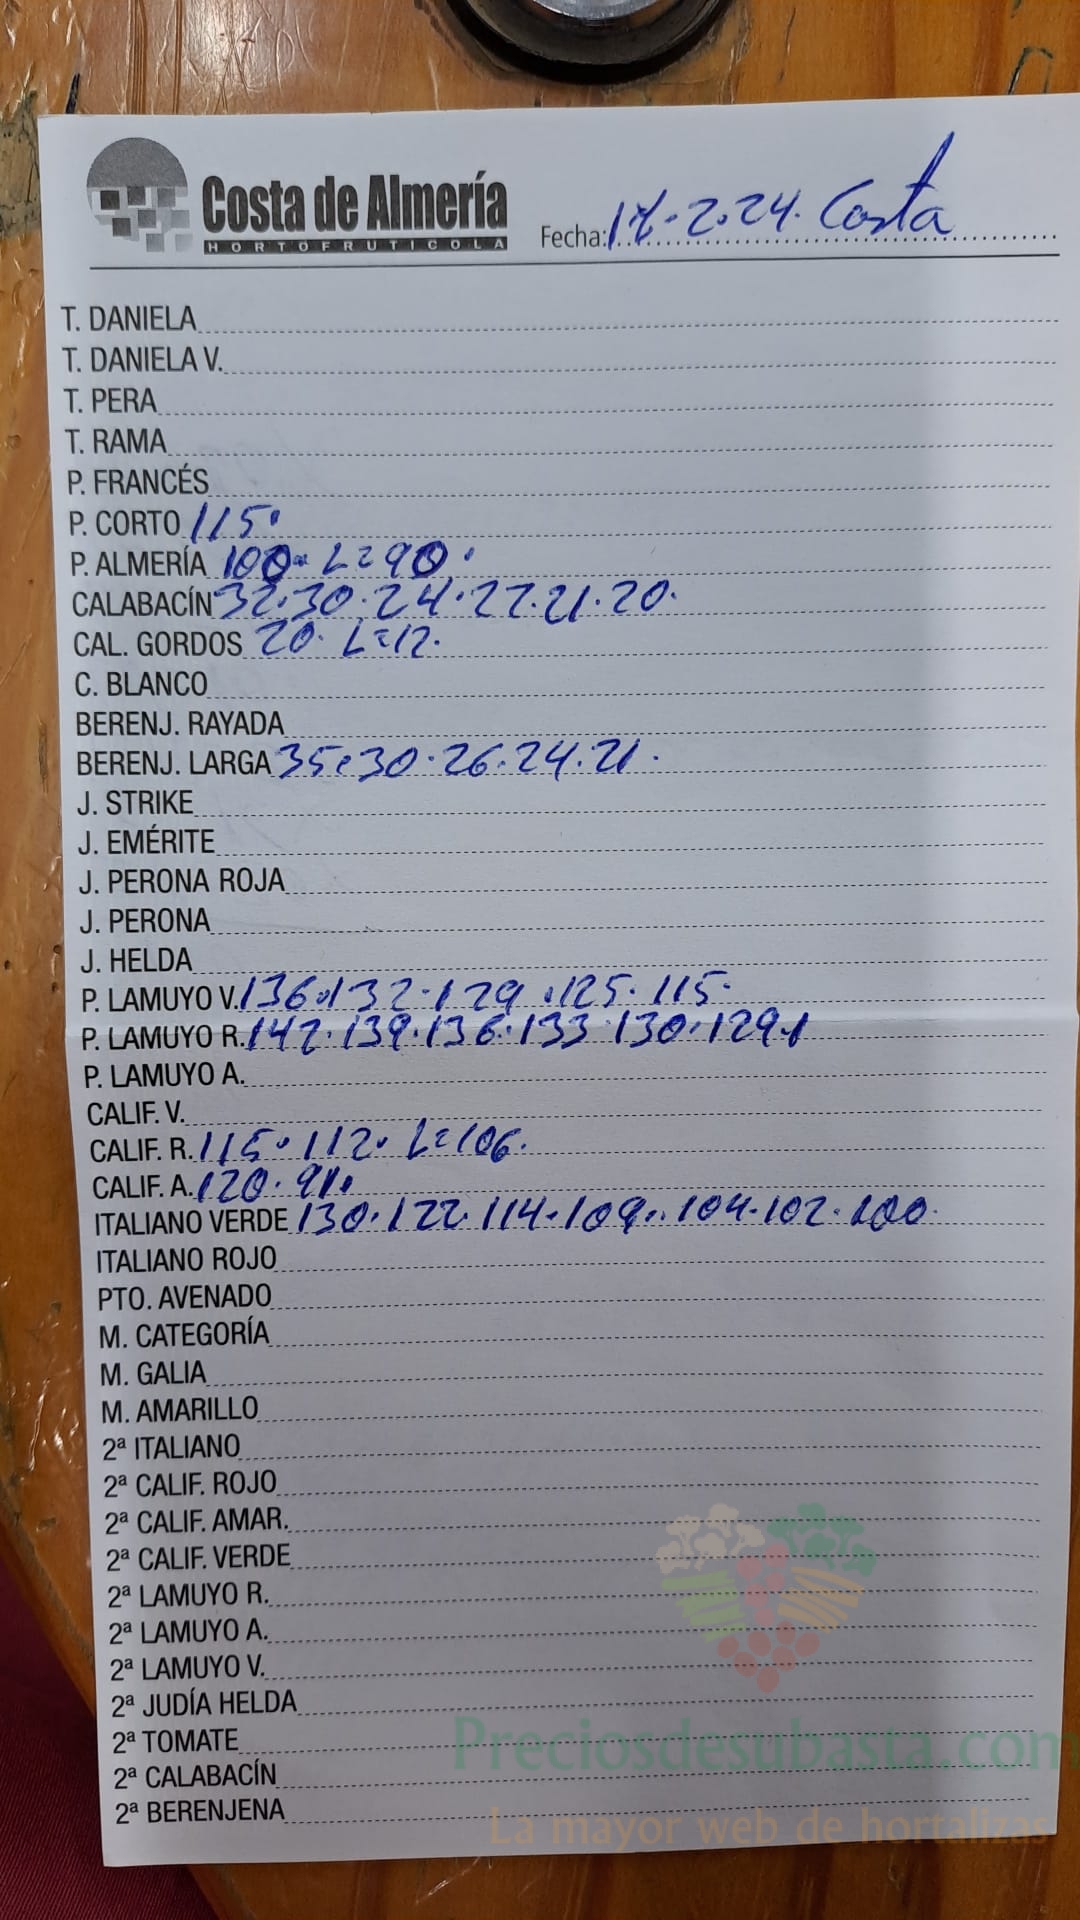 Costa de Almería
HORTOFRUTICOLA
Fecha: 17.2.24. Costa
T. DANIELA
T. DANIELA V.
T. PERA
T. RAMA
P. FRANCÉS
P. CORTO 115.
P. ALMERÍA 100. L=90.
CALABACÍN 32.30.24.22.21.20.
CAL. GORDOS 20. L=12.
C. BLANCO
BERENJ. RAYADA
BERENJ. LARGA 35.30.26.24.21.
J. STRIKE
J. EMÉRITE
J. PERONA ROJA
J. PERONA
J. HELDA
P. LAMUYO V. 136.132.129.125.115.
P. LAMUYO R. 142.139.136.133.130.129.
P. LAMUYO A.
CALIF. V.
CALIF. R. 115.112. L=106.
CALIF. A. 120.91.
ITALIANO VERDE 130.122.114.109.104.102.100.
ITALIANO ROJO
PTO. AVENADO
M. CATEGORÍA
M. GALIA
M. AMARILLO
2ª ITALIANO
2ª CALIF. ROJO
2ª CALIF. AMAR.
2ª CALIF. VERDE
2ª LAMUYO R.
2ª LAMUYO A.
2ª LAMUYO V.
2ª JUDÍA HELDA
2ª TOMATE
2ª CALABACÍN
2ª BERENJENA
Preciosdesubasta.com
La mayor web de hortalizas